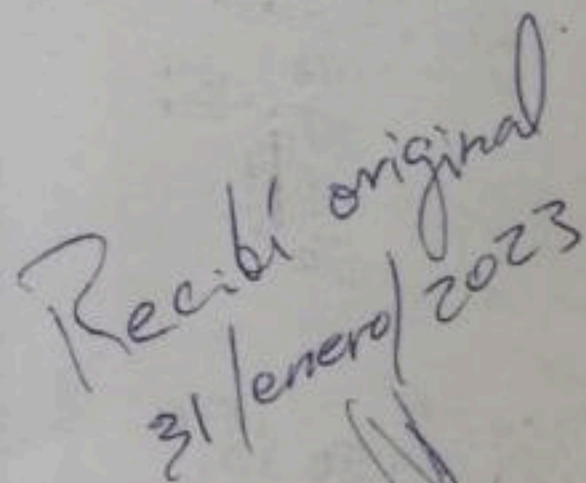 Recibí original
31/enero/2023